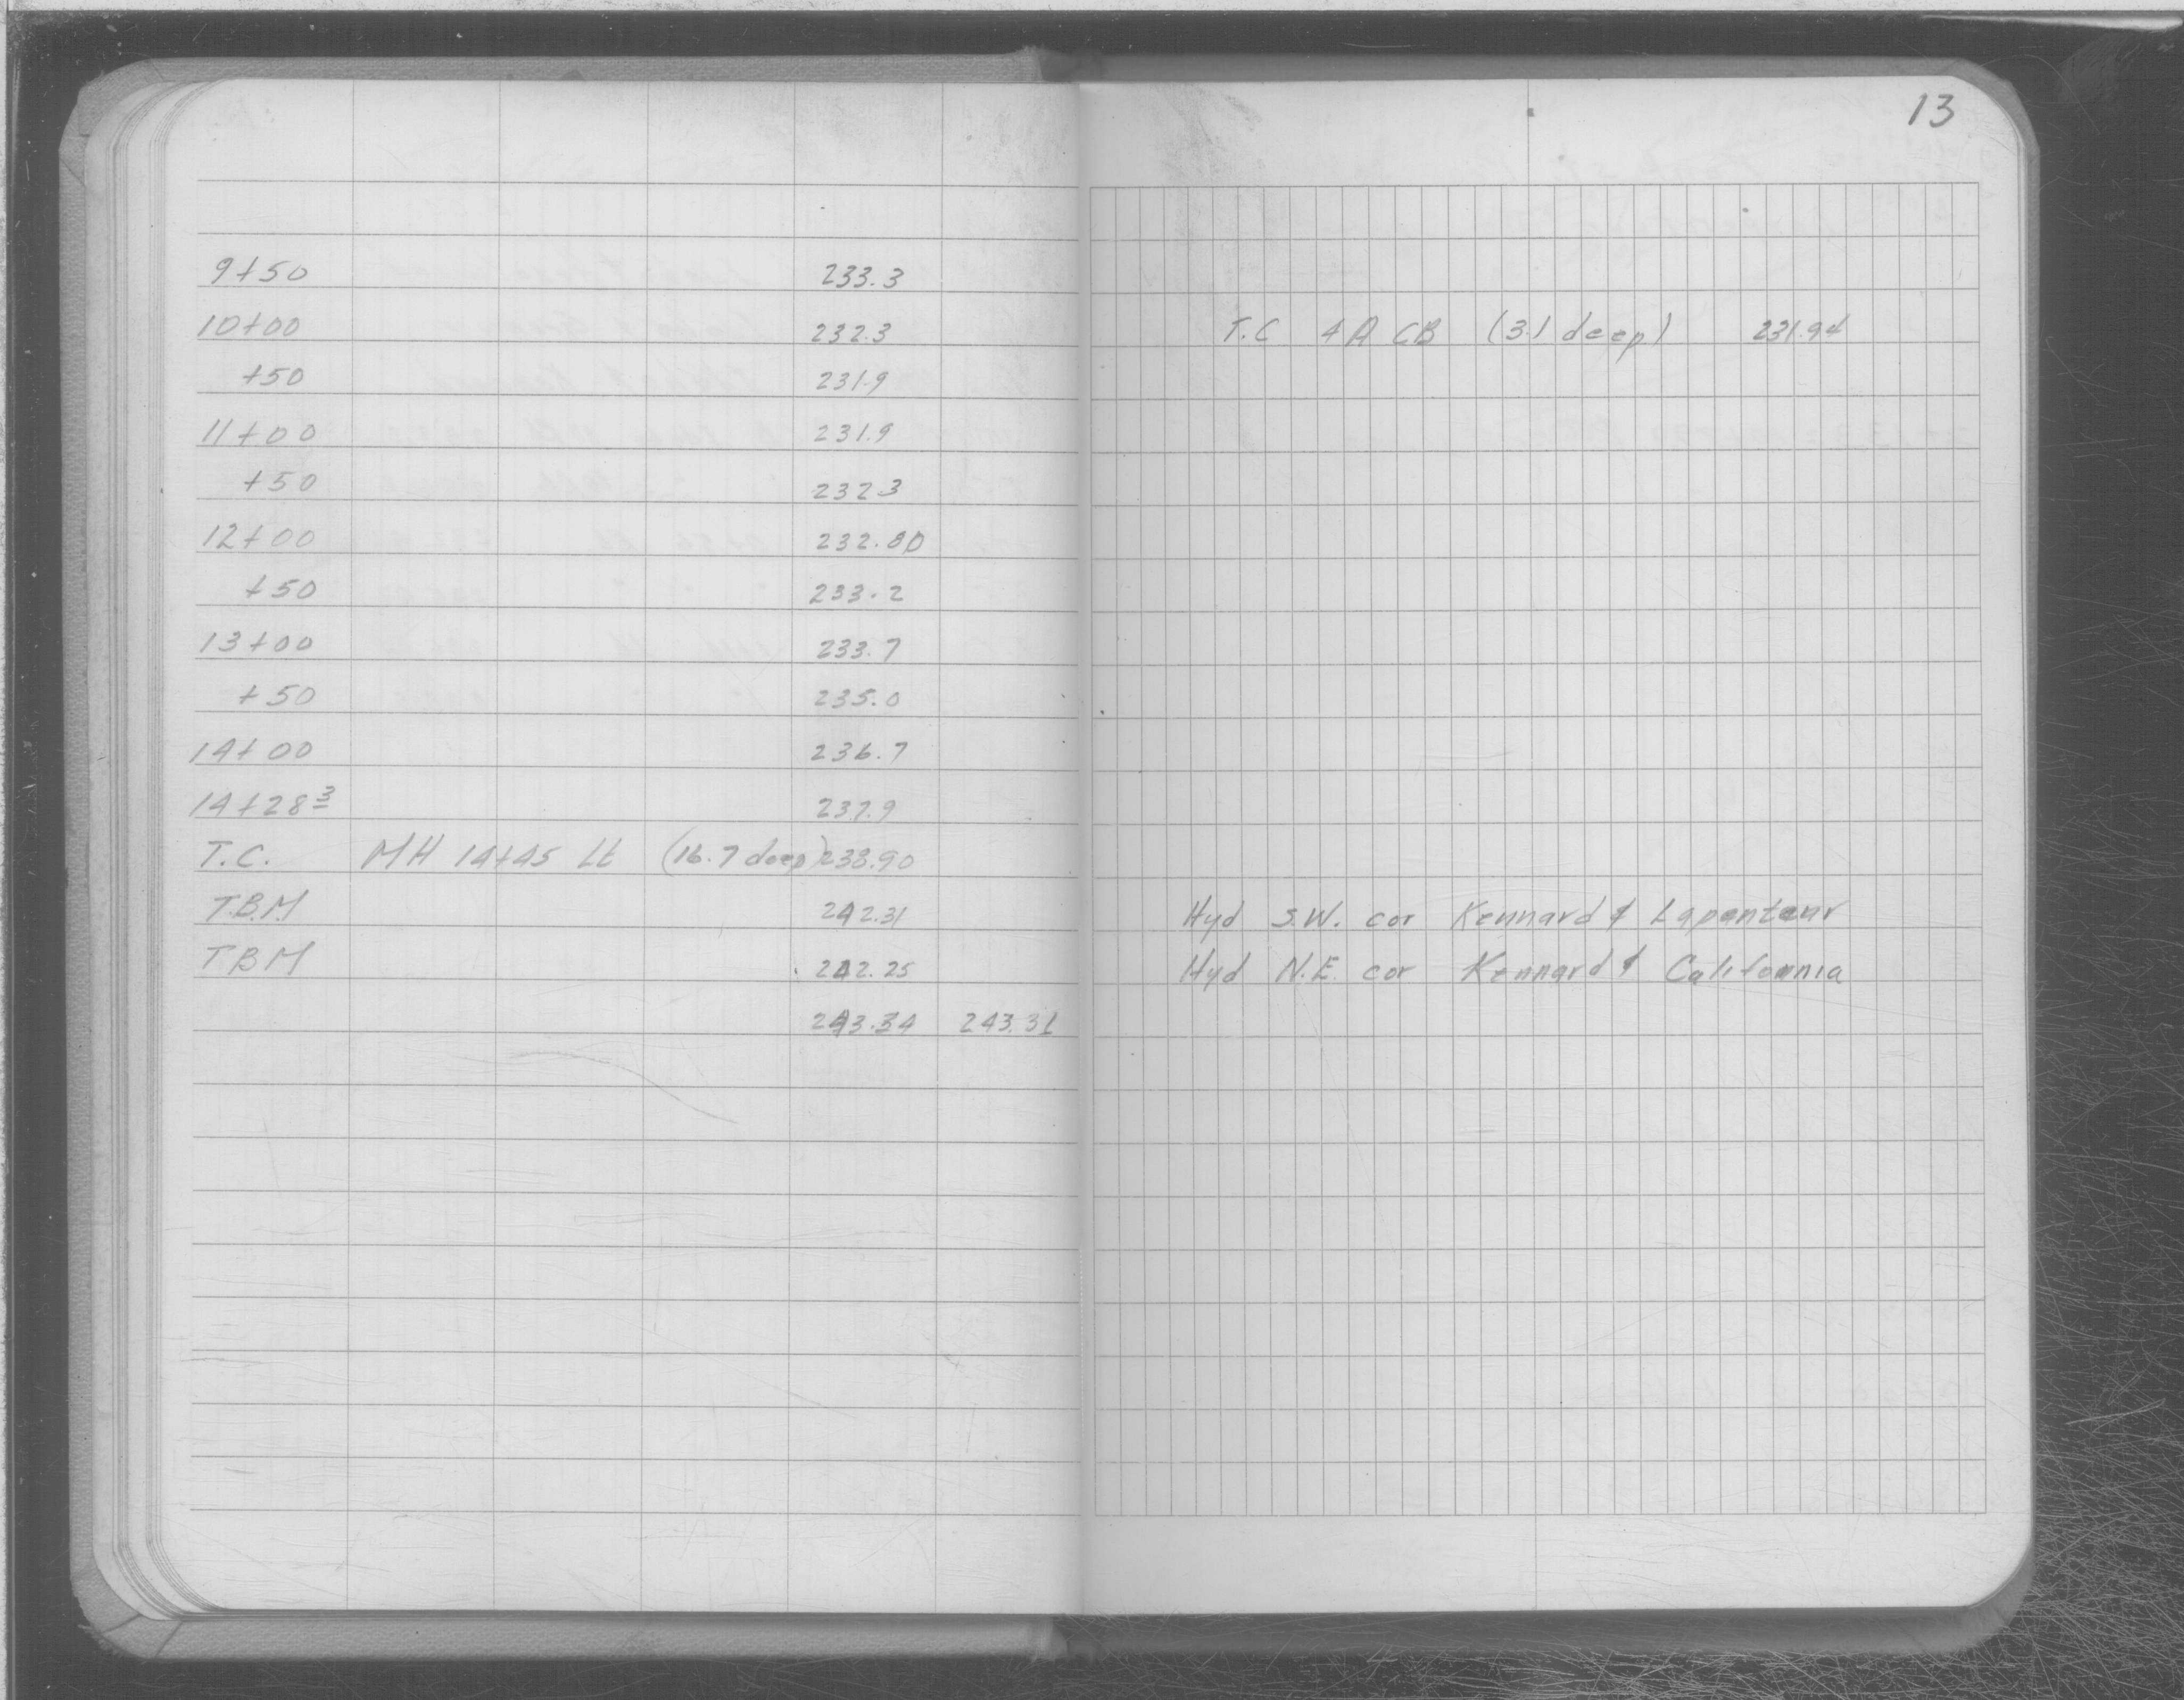 13
9+50 233.3
10+00 232.3 T.C 4A CB (3.1 deep) 231.94
+50 231.9
11+00 231.9
+50 232.3
12+00 232.80
+50 233.2
13+00 233.7
+50 235.0
14+00 236.7
14+28 3 237.9
T.C. MH 14+45 Lt (16.7 deep) 238.90
T.B.M 242.31 Hyd S.W. cor Kennard & Lapenteur
TBM 242.25 Hyd N.E. cor Kennard & California
243.34 243.31